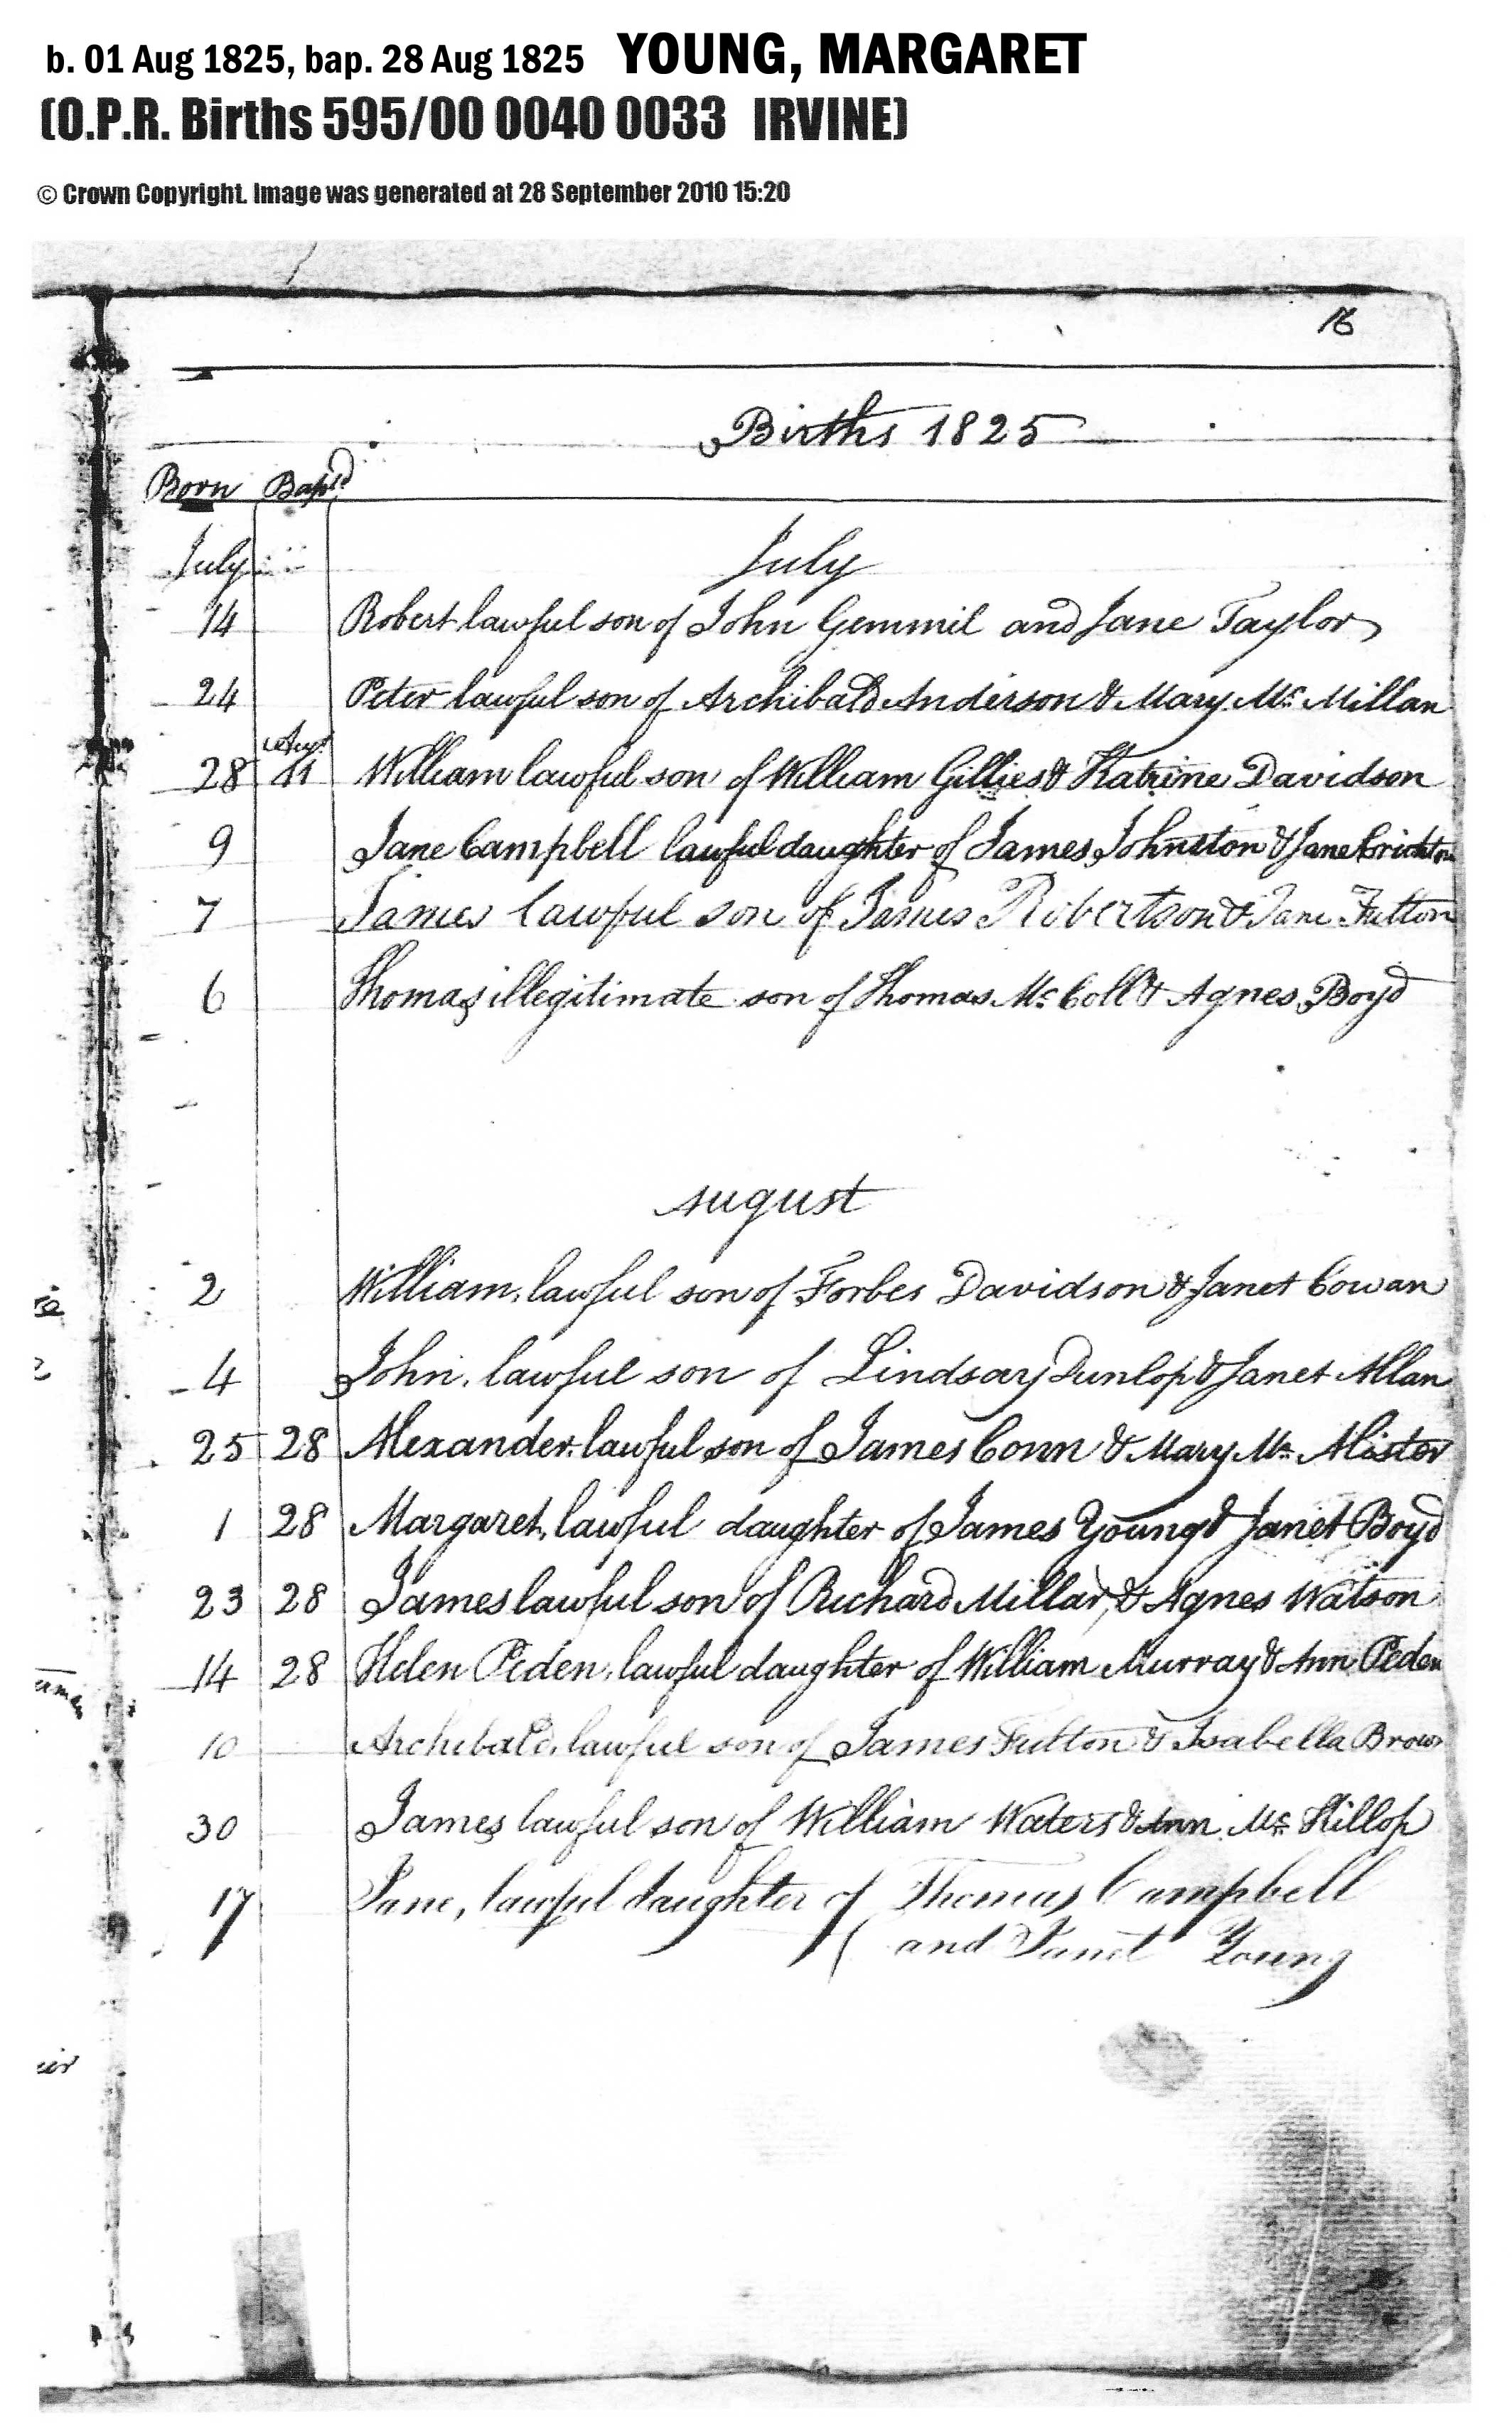 b. 01 Aug 1825, bap. 28 Aug 1825 YOUNG, MARGARET
(O.P.R. Births 595/00 0040 0033 IRVINE)
© Crown Copyright. Image was generated at 28 September 2010 15:20
16
Births 1825
Born Bapd
July July
14 Robert lawful son of John Gemmil and Jane Taylor
24 Peter lawful son of Archibald Anderson & Mary Mc Millan
Augt
28 11 William lawful son of William Gillies & Katrine Davidson
9 Jane Campbell lawful daughter of James Johnston & Jane Crichton
7 James lawful son of James Robertson & Jane Fulton
6 Thomas illegitimate son of Thomas Mc Coll & Agnes Boyd
August
2 William, lawful son of Forbes Davidson & Janet Cowan
4 John, lawful son of Lindsay Dunlop & Janet Allan
25 28 Alexander, lawful son of James Conn & Mary Mc Alister
1 28 Margaret, lawful daughter of James Young & Janet Boyd
23 28 James lawful son of Richard Millar, & Agnes Watson
14 28 Helen Peden, lawful daughter of William Murray & Ann Peden
10 Archibald, lawful son of James Fulton & Isabella Brown
30 James lawful son of William Waters & Ann Mc Killop
17 Jane, lawful daughter of Thomas Campbell
( and Janet Young